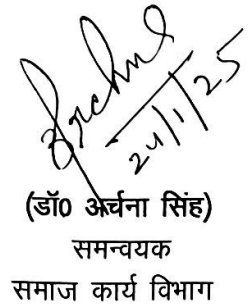 Archna
24/1/25
(डॉ0 अर्चना सिंह)
समन्वयक
समाज कार्य विभाग